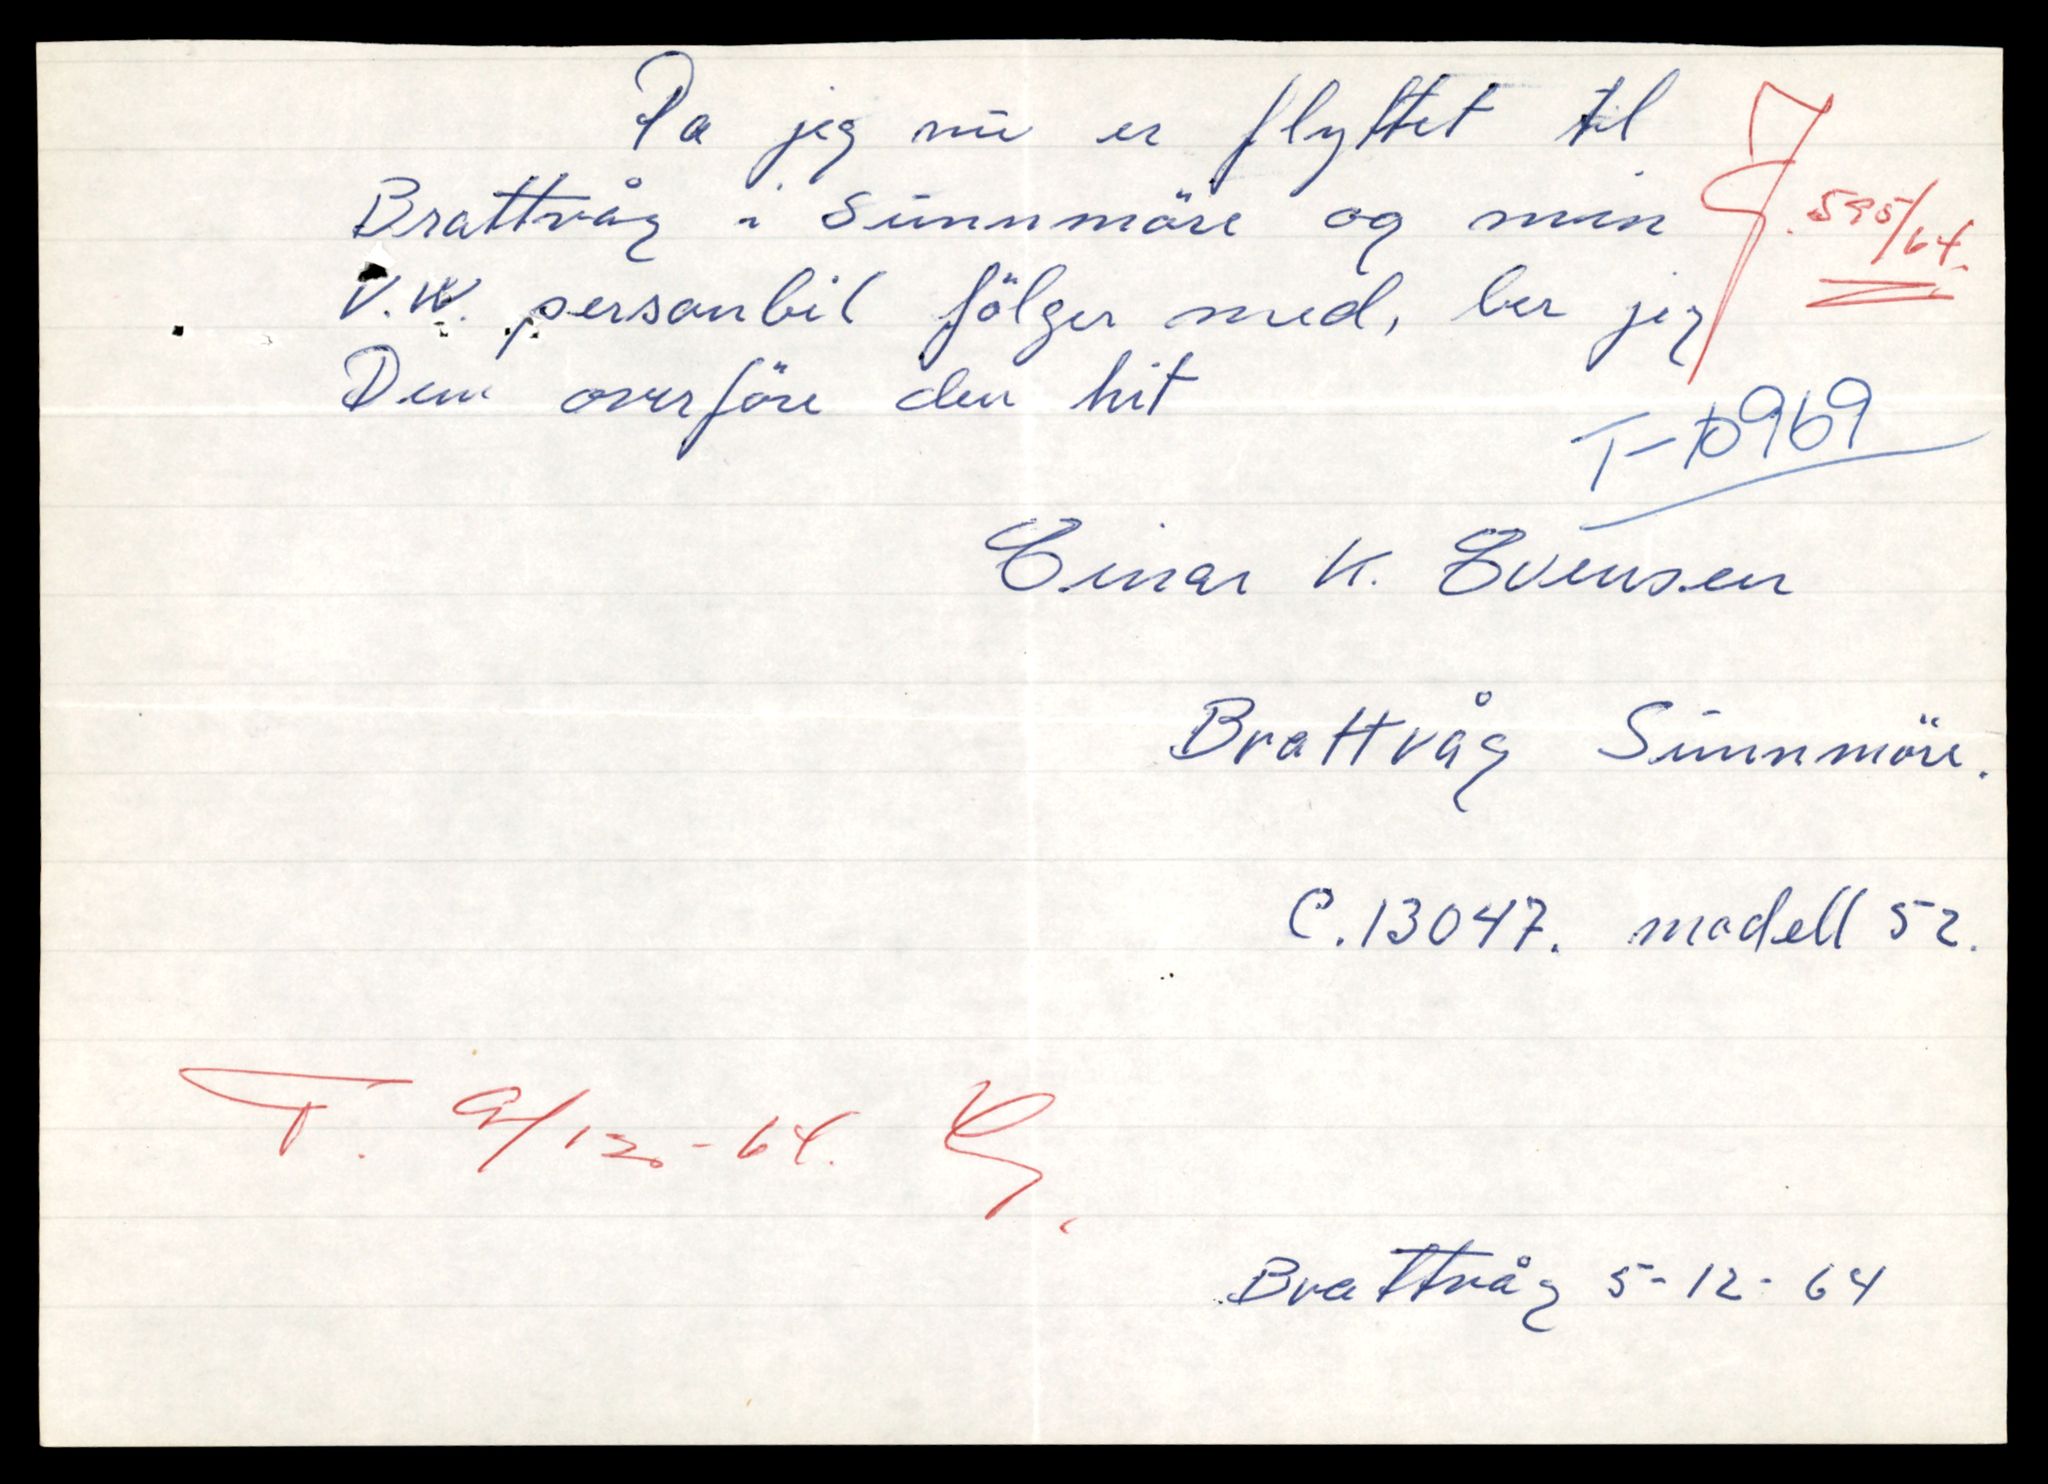 Da jeg nu er flyttet til
Brattvåg i Sunnmöre og min
J. 595/64.
V.W. personbil fölger med, ber jeg
Dem overföre den hit
T-10969
Einar K. Evensen
Brattvåg Sunnmöre.
C.13047. modell 52.
T. 9/12-64.
Brattvåg 5-12-64